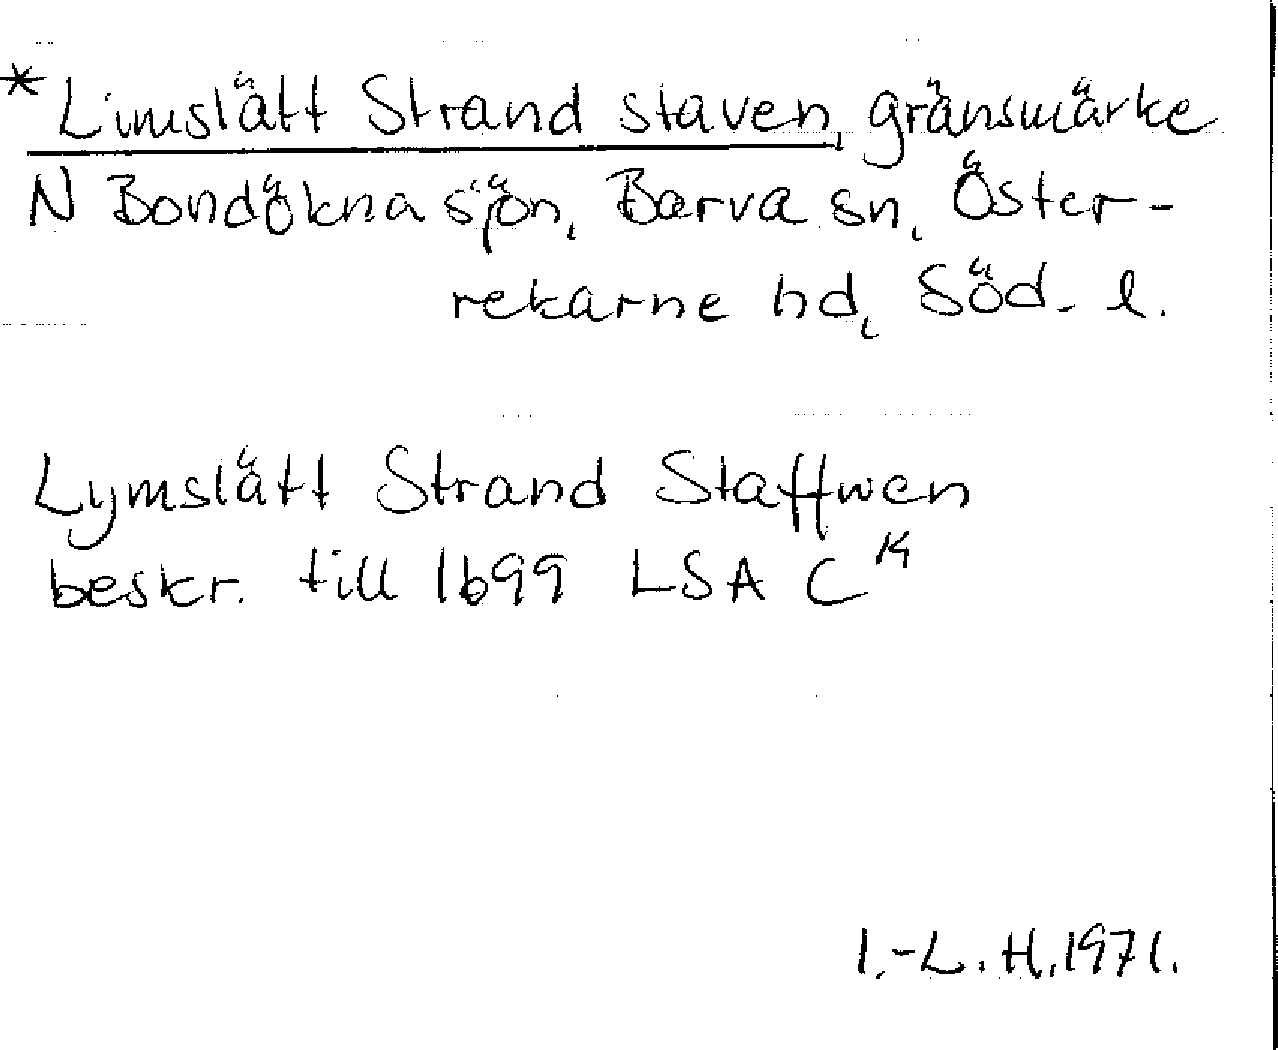 *Limslätt Strand staven, gränsmärke
N Bondökna sjön, Barva sn, Öster-
rekarne hd, Söd. l.
Lymslätt Strand Staffwen
beskr. till 1699 LSA C 14
I.-L. H. 1971.